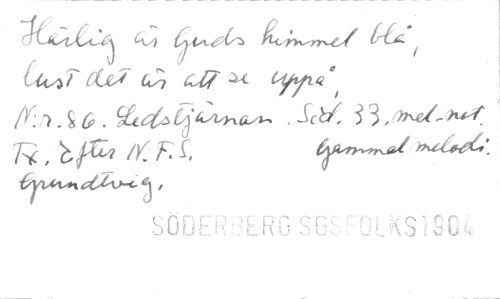 Härlig är Guds himmel blå,
lust det är att se uppå,
N:r. 86. Ledstjärnan. Sid. 33. mel. not.
Tx. Efter N. F. S. Gammal melodi.
Grundtvig.
SÖDERBERG SGSFOLKS1904